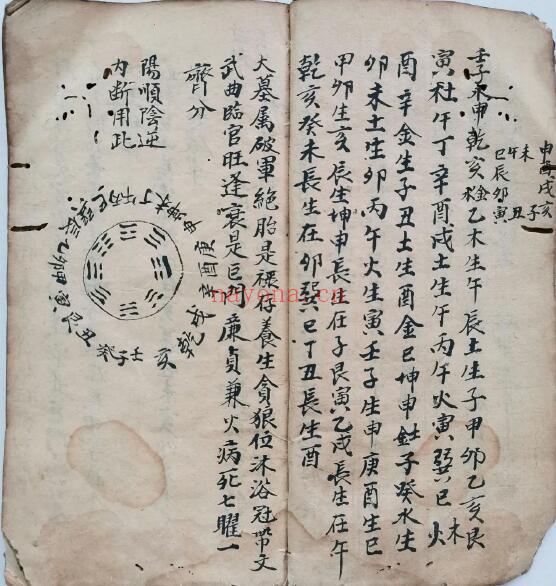 壬子水申乾亥金乙木生午辰土生子甲卯乙亥艮木
寅社午丁辛酉戌土生午丙午火寅巽巳火
酉辛金生子丑土生酉金巳坤申金子癸水生
卯未土生卯丙午火生寅壬子生申庚酉生巳
甲卯生亥辰生坤申長生在子艮寅乙戌長生在午
乾亥癸未長生在卯巽巳丁丑長生酉
申酉戌亥
未午
巳辰卯
寅丑子
大墓属破軍絶胎是祿存養生貪狼位沐浴冠帶文
武曲臨官旺逢衰是巨門廉貞兼火病死七曜一
齊分
陽順陰逆
内断用此
壬子癸丑艮寅甲卯乙辰巽巳丙午丁未坤申庚酉辛戌乾亥
nayona.cn